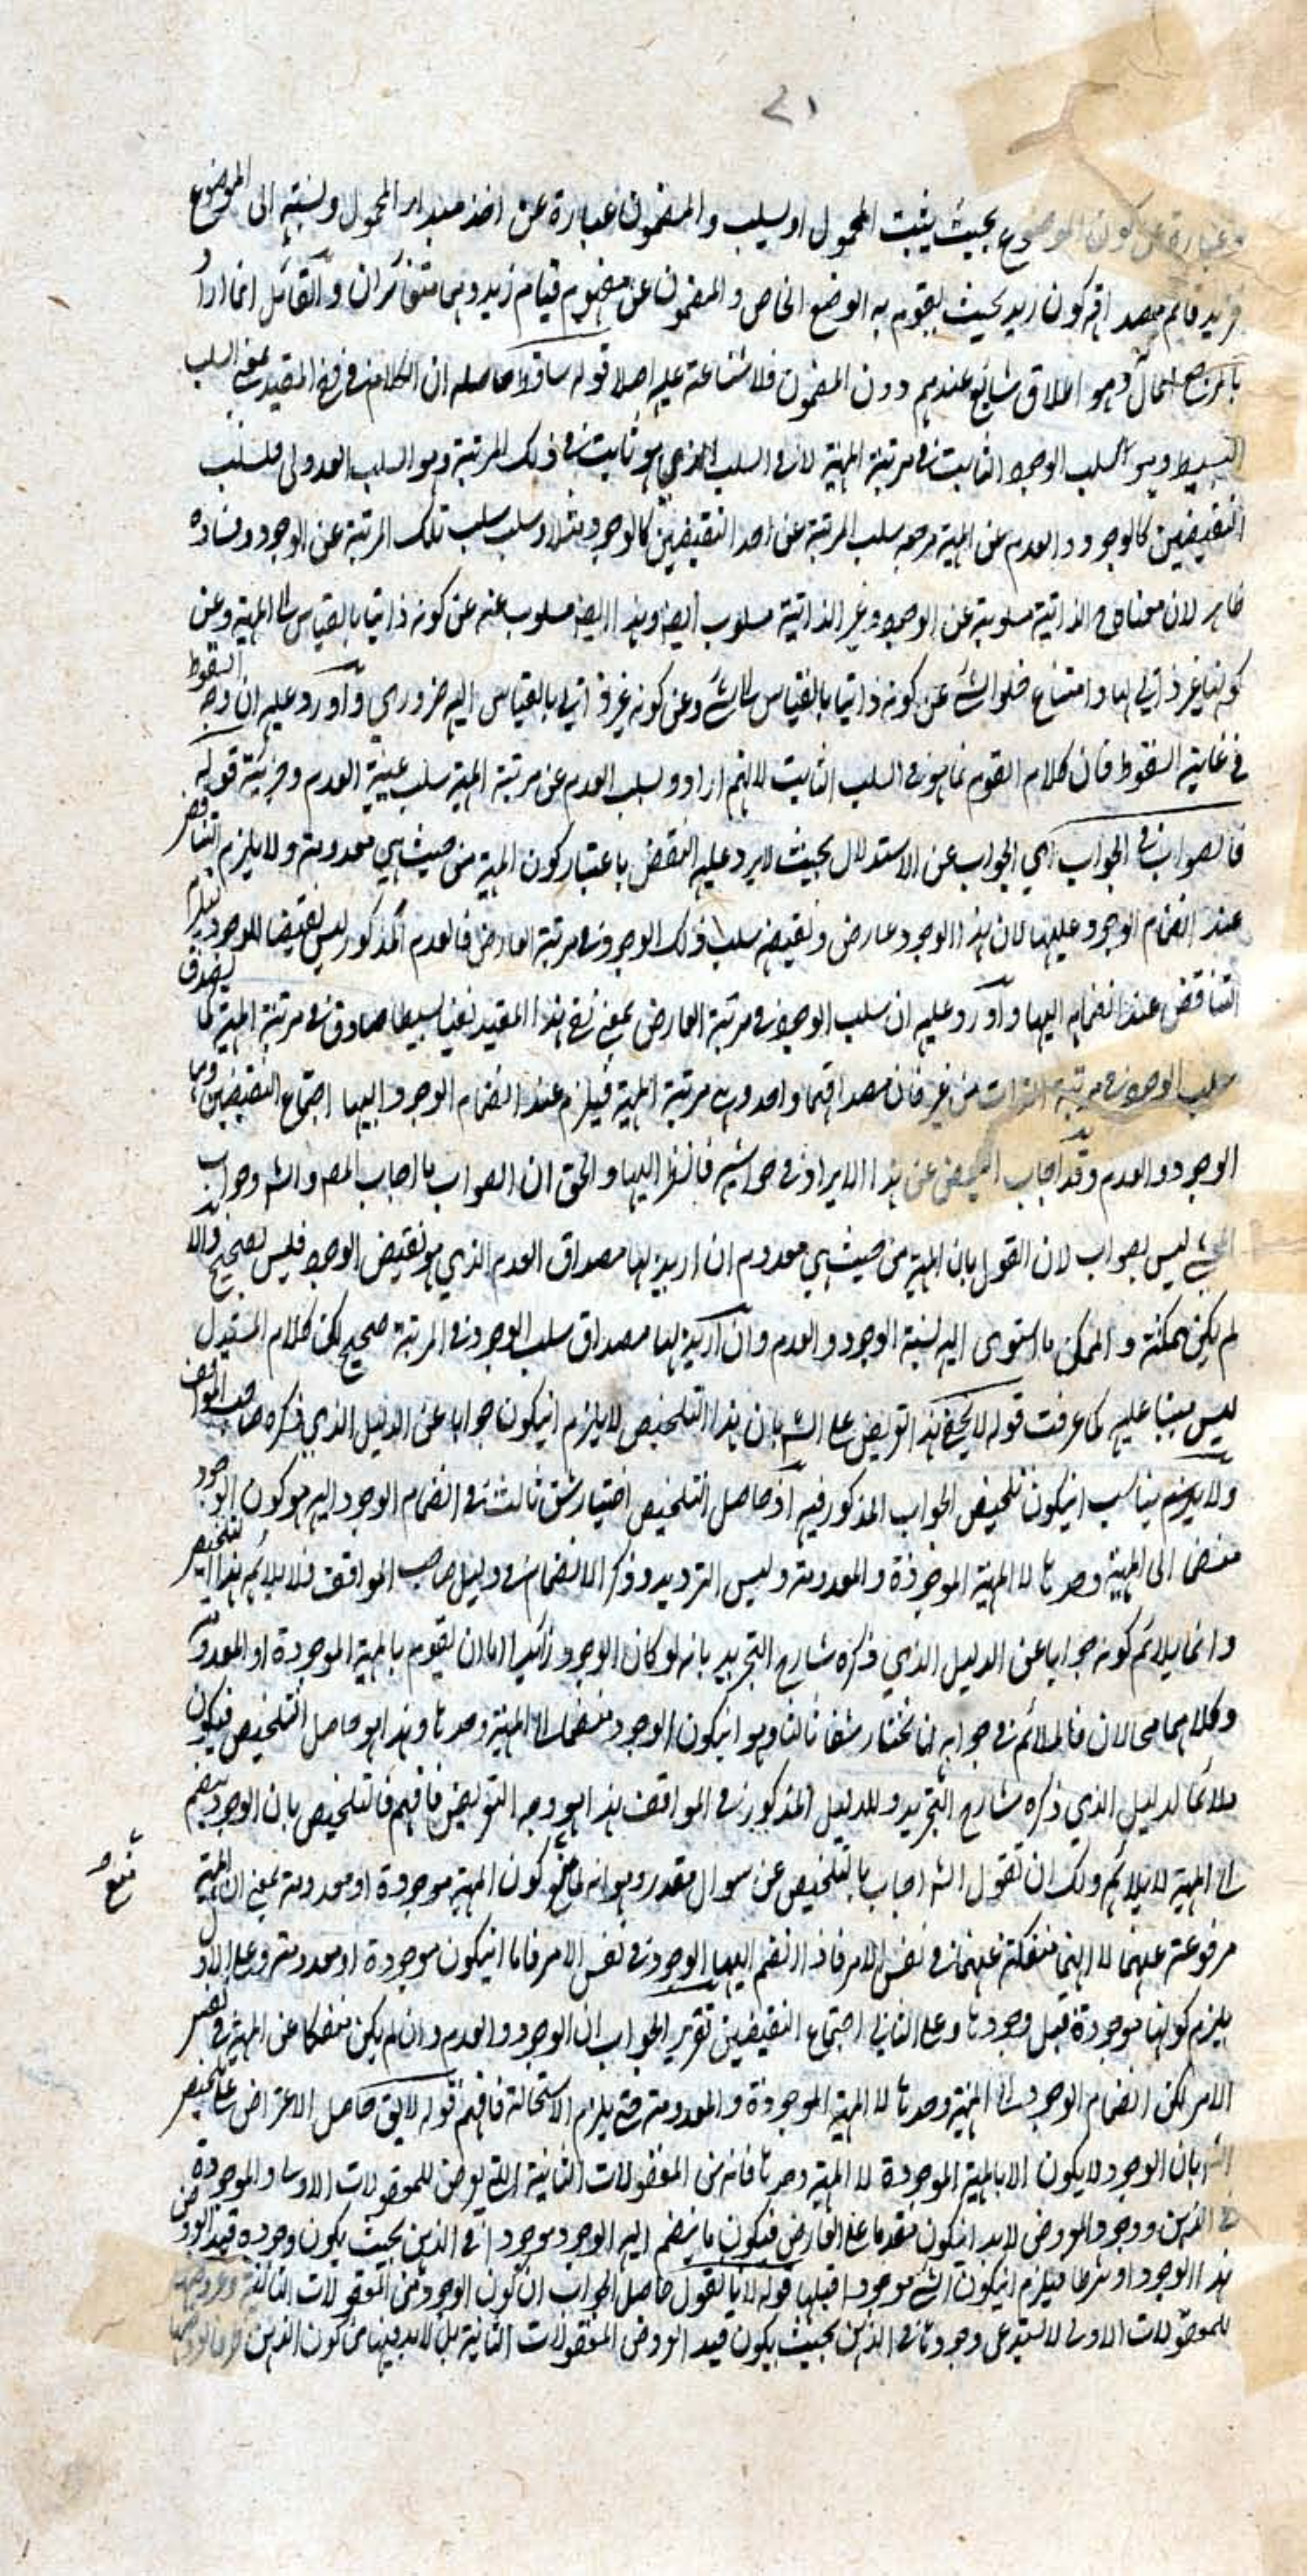 ٢١
عبارة عن كون الموضوع بحيث يثبت المحمول او يسلب والمضمون عبارة عن اخذ مبدا المحمول ونسبته الى الموضوع
فزيد قائم مصداقه كون زيد بحيث يقوم به الوضع الخاص والمضمون عن مفهوم قيام زيد وهما متغائران والقائل انما اراد
الحال وهو اطلاق شايع عندهم دون المضمون فلا شناعة عليه اصلا قوله ساقط حاصله ان الكلام في نفي المقيد بمعنى السلب
البسيط وهو السلب الوجود الثابت في مرتبة المهية لا في السلب الذي هو ثابت في ذلك المرتبة وهو السلب العدولي فسلب
النقيضين كالوجود والعدم عن المهية مرجعه سلب المرتبة عن احد النقيضين كالوجود مثلا وسلب سلب تلك المرتبة عن الوجود وفساده
ظاهر لان معناه الذاتية مسلوبة عن الوجود وغير الذاتية مسلوب ايضا وهذا ايضا مسلوب عنه عن كونه ذاتيا بالقياس الى المهية وعن
كونها غير ذاتي لها وامتناع خلو الشئ عن كونه ذاتيا بالقياس الى شئ وعن كونه غير ذاتي بالقياس اليه ضروري واورد عليه ان وجه السقوط
في غاية السقوط فان كلام القوم انما هو في السلب الثابت لانهم ارادوا بسلب العدم عن مرتبة المهية سلب عينية العدم وجزئيته قوله
فالصواب في الجواب اي الجواب عن الاستدلال بحيث لا يرد عليه النقض باعتبار كون المهية من حيث هي معدومة ولا يلزم التناقض
عند انضمام الوجود عليها لان هذا الوجود عارض ونقيضه سلب ذلك الوجود في مرتبة العارض فالعدم المذكور ليس نقيضا للوجود ليلزم
التناقض عند انضمام اليها واورد عليه ان سلب الوجود في مرتبة العارض بمعنى نفي هذا المقيد نفيا بسيطا صادق في مرتبة المهية كما يصدق
سلب الوجود في مرتبة الذات من غير فان مصداقهما واحد وهي مرتبة المهية فيلزم عند انضمام الوجود اليها اجتماع النقيضين وهما
الوجود والعدم وقد اجاب البعض عن هذا الايراد في حواشيه فانظر اليها والحق ان الصواب ما اجاب المص والش وجواب
المحشي ليس بصواب لان القول بان المهية من حيث هي معدوم ان اريد بها مصداق العدم الذي هو نقيض الوجود فليس بصحيح والا
لم يكن ممكنة والممكن ما استوى اليه نسبة الوجود والعدم وان اريد بها مصداق سلب الوجود في المرتبة صحيح لكن كلام المستدل
ليس مبنيا عليه كما عرفت قوله لا يخفى هذا تعريض على الش بان هذا التلخيص لا يلزم ان يكون جوابا عن الدليل الذي ذكره صاحب المواقف
ولا يناسب ان يكون تلخيص الجواب المذكور فيه اذ حاصل التلخيص اختيار شق ثالث في انضمام الوجود اليه هو كون الوجود
منضما الى المهية وحدها لا المهية الموجودة والمعدومة وليس الترديد وذكر الانضمام في دليل صاحب المواقف فلا يلائم هذا التلخيص
وانما يلائم كونه جوابا عن الدليل الذي ذكره شارح التجريد بانه لو كان الوجود زائدا اما ان يقوم بالمهية الموجودة او المعدومة
وكلاهما محالان فالملائم في جوابه ان نختار شقا ثالثا وهو ان يكون الوجود منضما الى المهية وحدها وهذا هو حاصل التلخيص فيكون
ملائما لدليل الذي ذكره شارح التجريد وللدليل المذكور في المواقف هذا هو وجه التعريض فافهم فالتلخيص بان الوجود ينضم
الى المهية لا يلائم ولك ان تقول الش اجاب بالتلخيص عن سوال مقدر وهو انه لما منع كون المهية موجودة او معدومة بمعنى ان المهية
مرفوعة عنهما لا انها منفكة عنهما في نفس الامر فاذا انضم اليها الوجود في نفس الامر فاما ان يكون موجودة او معدومة وعلى الاول
يلزم كونها موجودة قبل وجودها وعلى الثاني اجتماع النقيضين تقرير الجواب ان الوجود والعدم وان لم يكن منفكا عن المهية في نفس
الامر لكن انضمام الوجود الى المهية وحدها لا المهية الموجودة والمعدومة حتى يلزم الاستحالة فافهم قوله لا يق حاصل الاعتراض على تلخيص
الش بان الوجود لا يكون الا بالمهية الموجودة لا المهية وحدها فانه من المعقولات الثانية التي يعرض للمعقولات الاولى والموجودة
في الذهن ووجود المعروض لا بد ان يكون مقدما على العارض فيكون ما ينضم اليه الوجود موجودا في الذهن بحيث يكون وجوده قيد العروض
هذا الوجود او شرطا فيلزم ان يكون الشئ موجودا قبلها قوله لانا نقول حاصل الجواب ان كون الوجود من المعقولات الثانية وعروضها
للمعقولات الاولى لا يستدعي وجودها في الذهن بحيث يكون قيد العروض المعقولات الثانية بل لا بد فيها من كون الذهن ظرفا لعروضها